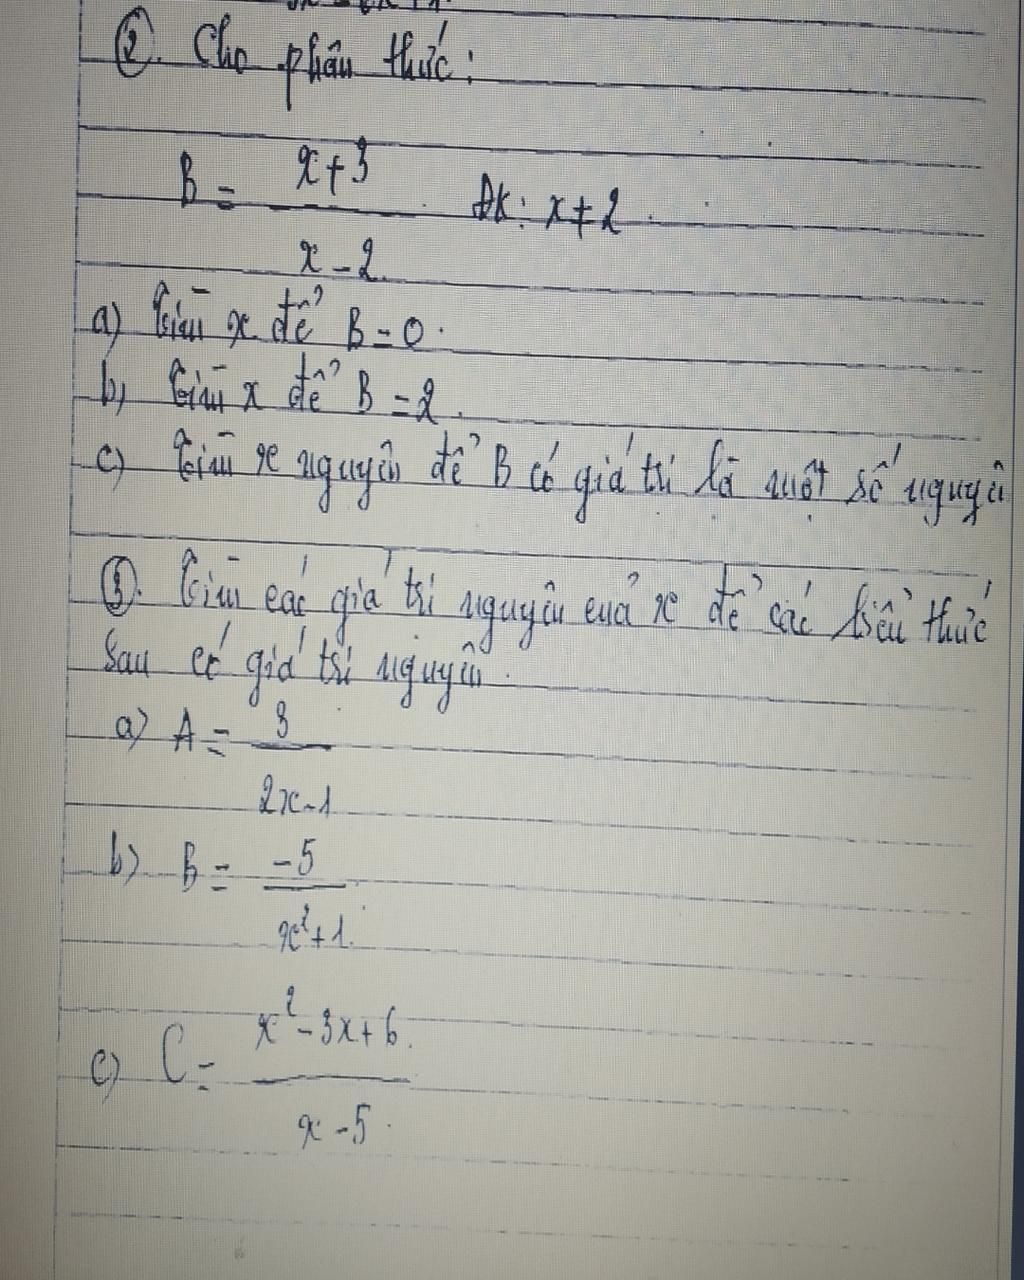 ②. Cho phân thức:
B = x+3 / x-2 ĐK: x≠2.
a) Tìm x để B=0.
b) Tìm x để B=2.
c) Tìm x nguyên để B có giá trị là một số nguyên
③. Tìm các giá trị nguyên của x để các biểu thức
sau có giá trị nguyên.
a) A = 3 / 2x-1
b) B = -5 / x²+1.
c) C = x²-3x+6. / x-5.